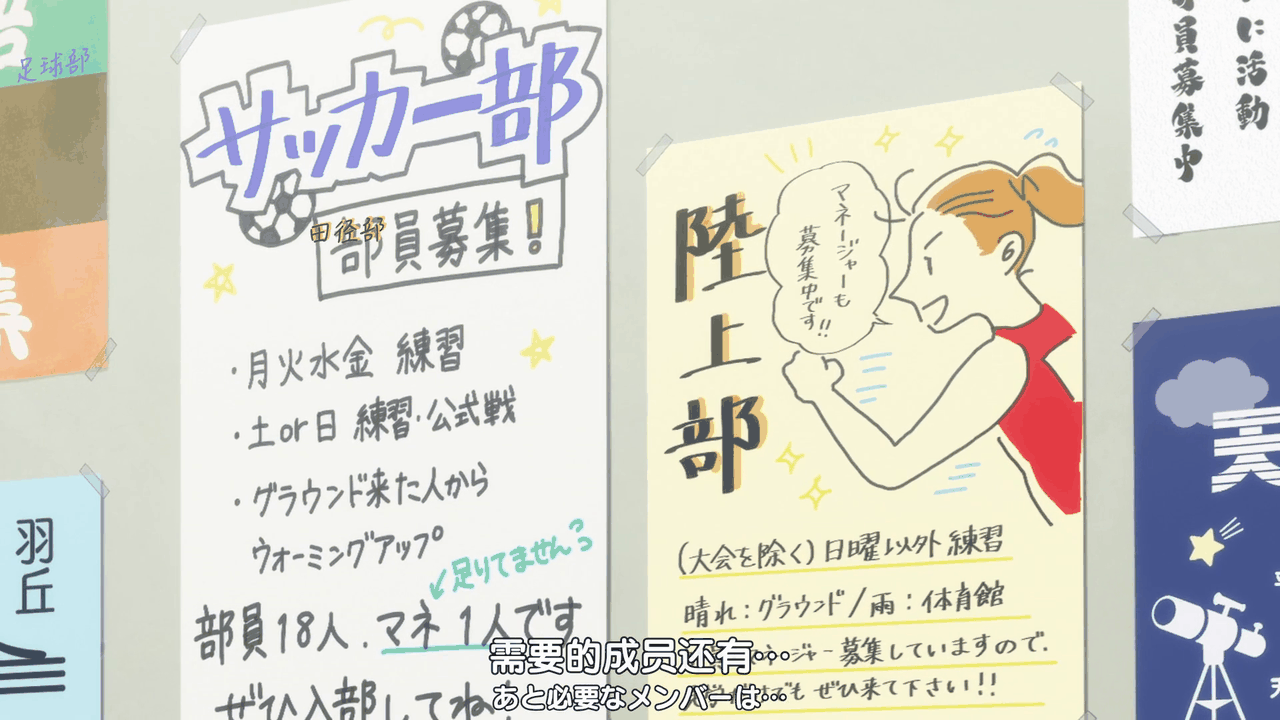 足球部
集
羽丘
サッカー部
田径部
部員募集!
・月火水金 練習
・土or日 練習・公式戦
・グラウンド来た人から
ウォーミングアップ
足りてません
部員18人.マネ1人です
ぜひ入部してね!
陸上部
マネージャーも
募集中です!!
(大会を除く)日曜以外練習
晴れ:グラウンド/雨:体育館
ージャー募集していますので.
でもぜひ来て下さい!!
に活動
員募集中
天
需要的成员还有…
あと必要なメンバーは…